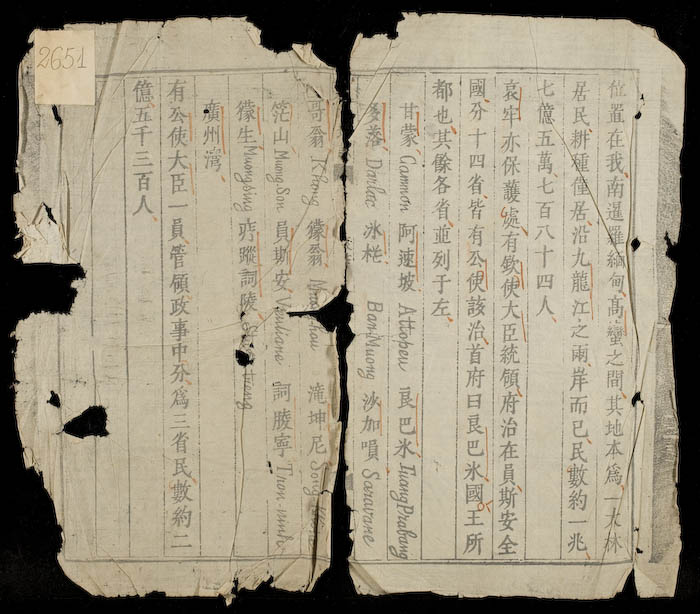 位置在我南暹羅緬甸高蠻之間其地本爲一大林
居民耕種僅居沿九龍江之兩岸而已民數約一兆
七億五萬七百八十四人
哀牢亦保護處有欽使大臣統領府治在員斯安全
國分十四省皆有公使該治首府曰良巴氷國王所
都也其餘各省並列于左
甘蒙 Cammon 阿速坡 Attopeu 良巴氷 Luang Prabang
落 Darlac 氷椛 Ban Muong 沙加嗊 Saravane
哥翁 Khong 獴翁 滝坤尼 Song
茫山 Muong Son 員斯安 Ventiane 詞䏰寧 Tran-ninh
獴生 Muong Sing 蹤詞陵
廣州灣
有公使大臣一員管領政事中分爲三省民數約二
億五千三百人
2651